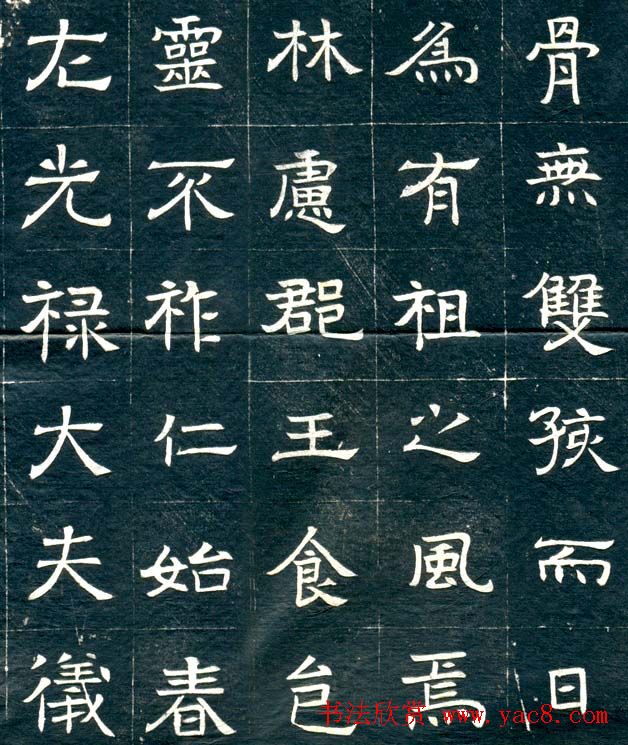 骨無雙孩而日
為有祖之風焉
林慮郡王食邑
靈不祚仁始春
左光禄大夫儀
书法欣赏 www.yac8.com